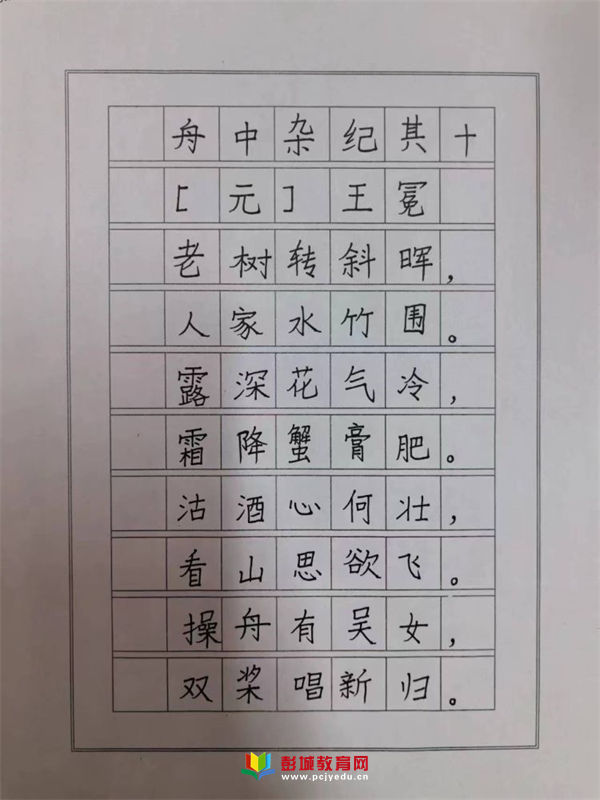 舟中杂纪其十
[元]王冕
老树转斜晖，
人家水竹围。
露深花气冷，
霜降蟹膏肥。
沽酒心何壮，
看山思欲飞。
操舟有吴女，
双桨唱新归。
彭城教育网
www.pcjyedu.cn